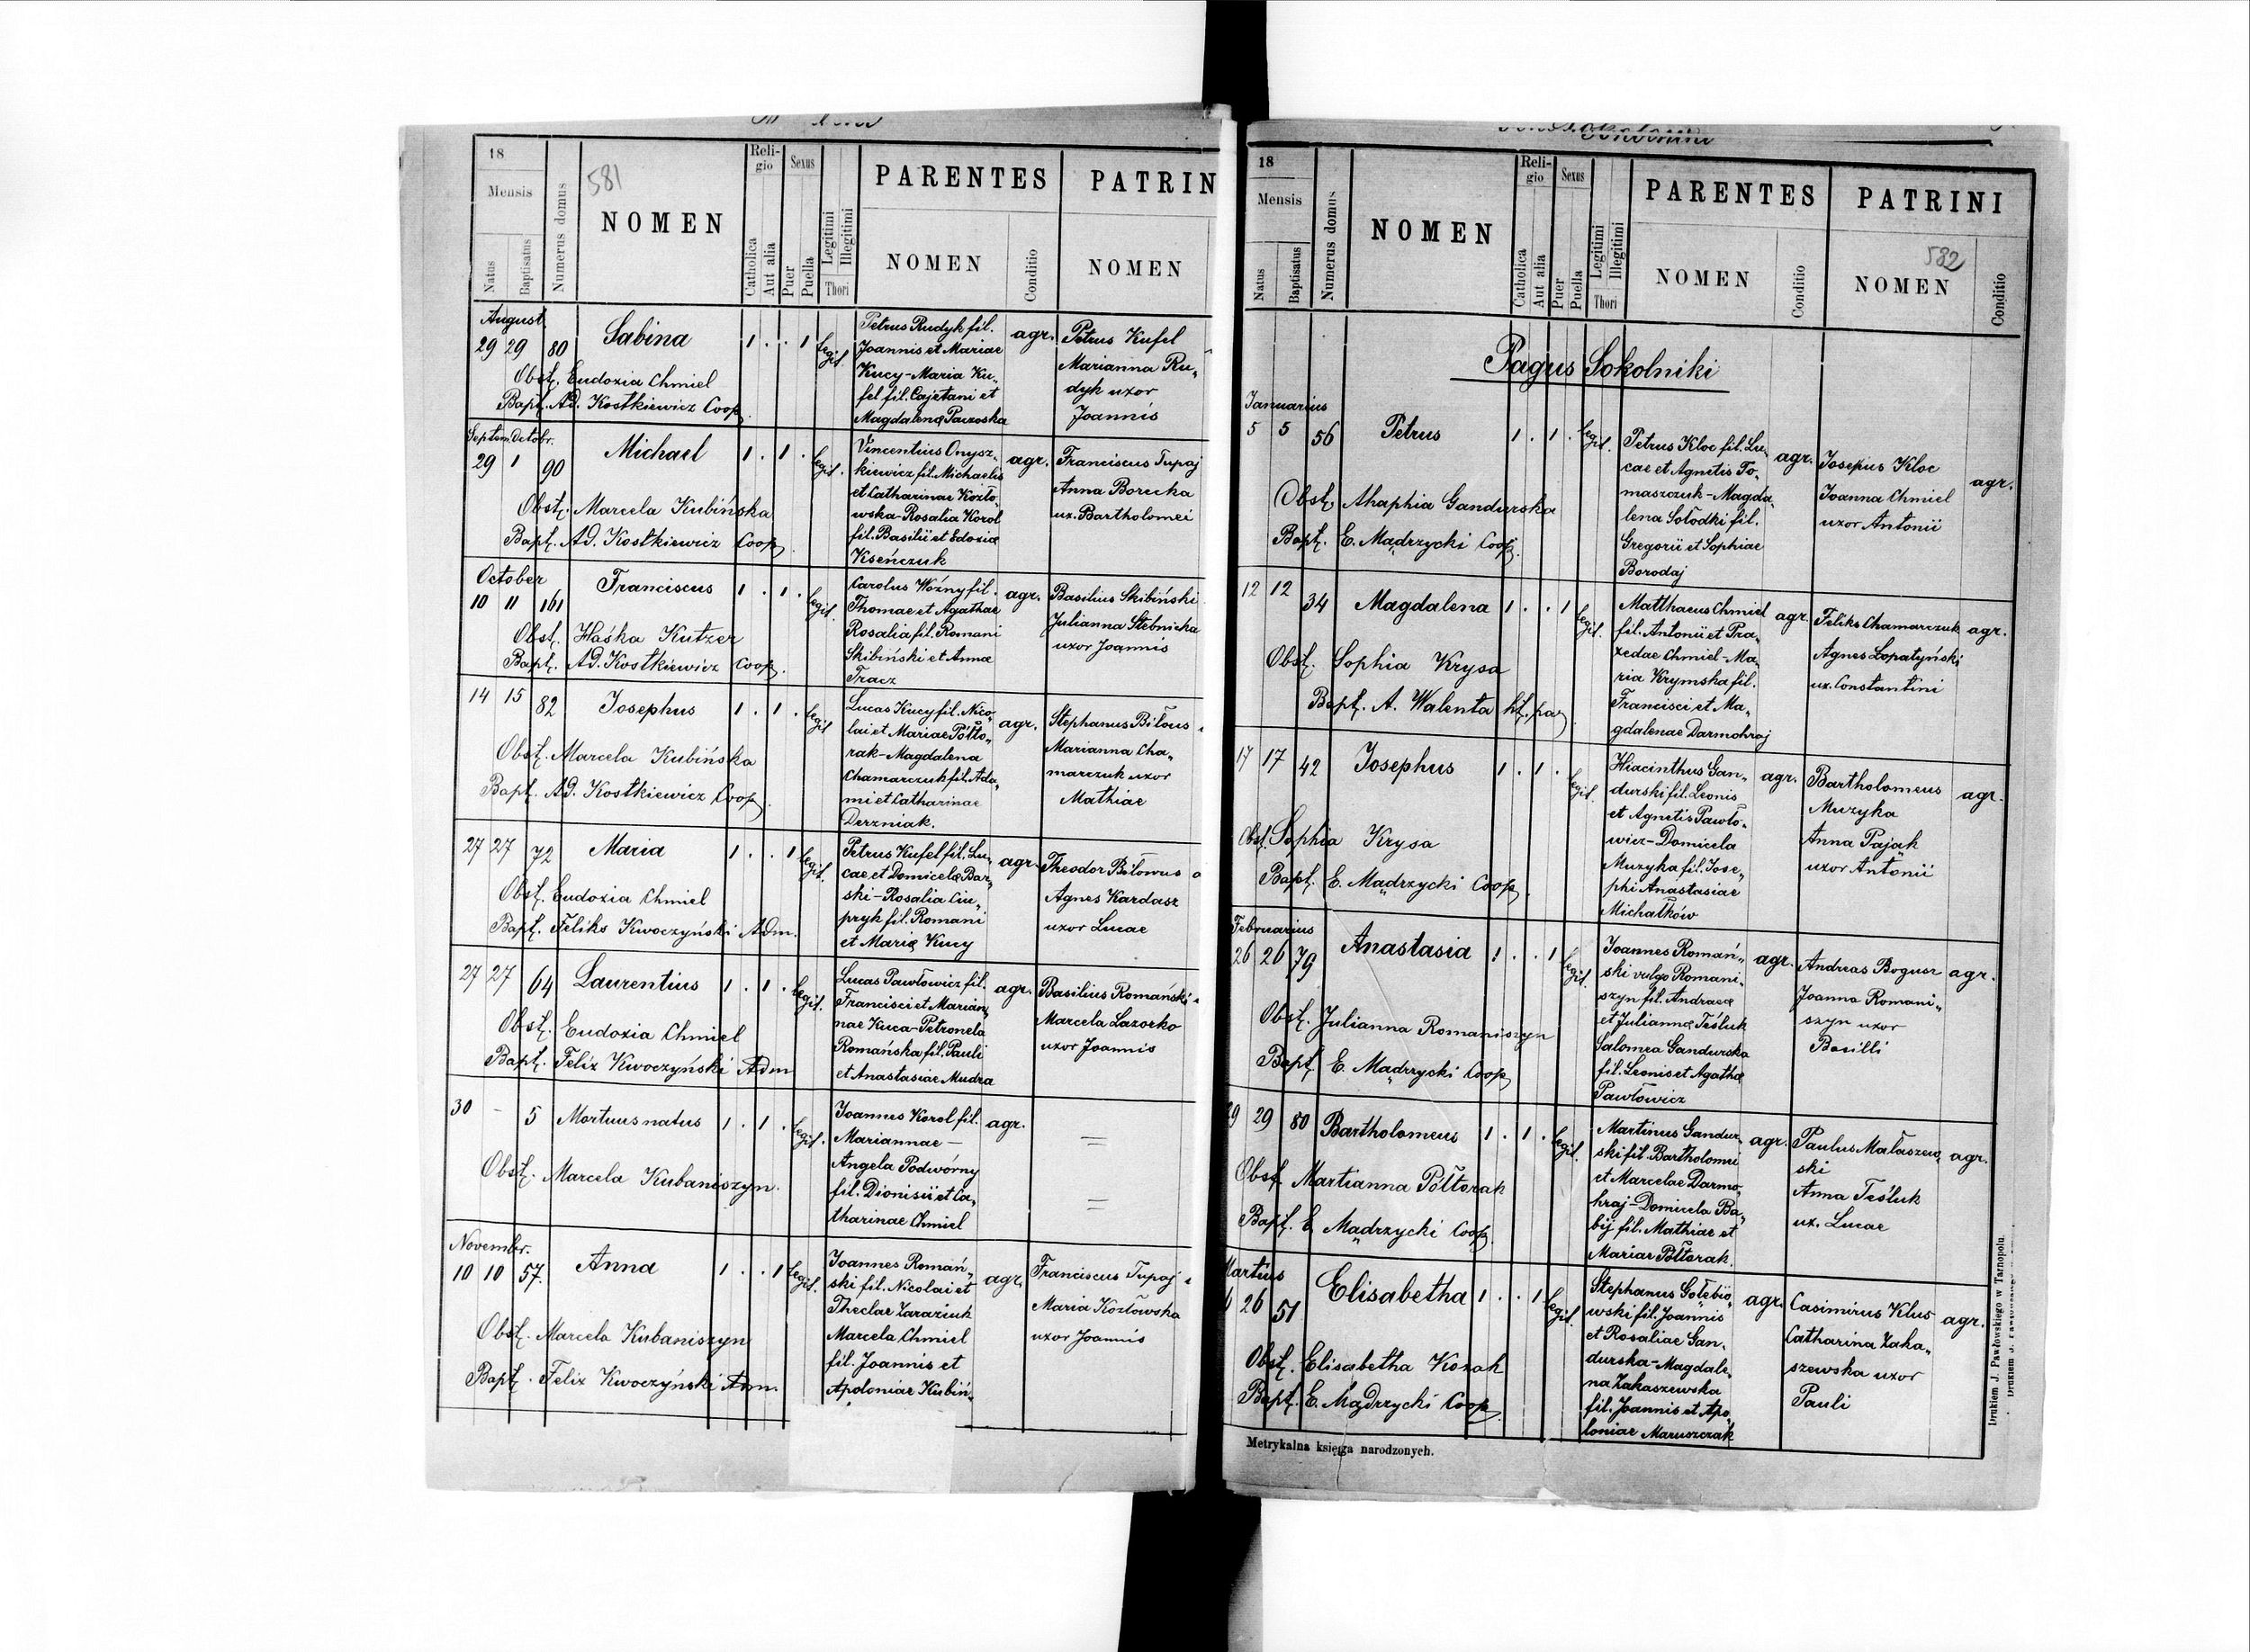 18
Mensis
Natus
Baptisatus
Numerus domus
581
NOMEN
Religio
Catholica
Aut alia
Sexus
Puer
Puella
Legitimi
Illegitimi
Thori
PARENTES
NOMEN
Conditio
PATRIN
NOMEN
August.
29 29 80 Sabina 1 . . 1 legit.
Obst. Eudoxia Chmiel
Bapt. Ad. Kostkiewicz Coop.
Petrus Rudyk fil.
Joannis et Mariae
Kucy-Maria Ku„
fel fil. Cajetani et
Magdalenæ Paczoska
agr.
Petrus Kufel
Marianna Ru„
dyk uxor
Joannis
Septem. Octobr.
29 1 90 Michael 1 . 1 . legit.
Obst. Marcela Kubińska
Bapt. Ad. Kostkiewicz Coop.
Vincentius Onysz„
kiewicz fil. Michaelis
et Catharinae Kozło„
wska-Rosalia Korol
fil. Basilii et Edoxiæ
Kseńczuk
agr.
Franciscus Tupaj
Anna Borecka
ux. Bartholomei
October
10 11 161 Franciscus 1 . 1 . legit.
Obst. Haśka Kutzer
Bapt. Ad. Kostkiewicz Coop.
Carolus Woźny fil.
Thomae et Agathae
Rosalia fil. Romani
Skibiński et Annæ
Tracz
agr.
Basilius Skibiński
Julianna Stebnicka
uxor Joannis
14 15 82 Josephus 1 . 1 . legit
Obst. Marcela Kubińska
Bapt. Ad. Kostkiewicz Coop.
Lucas Kucy fil. Nico„
lai et Mariae Półto„
rak-Magdalena
Chamarczuk fil. Ada„
mi et Catharinae
Derzniak.
agr.
Stephanus Biłous
Marianna Cha„
marczuk uxor
Mathiae
27 27 72 Maria 1 . . 1 legit.
Obst. Eudoxia Chmiel
Bapt. Feliks Kwoczyński Adm.
Petrus Kufel fil. Lu„
cae et Domicelæ Bar„
ski-Rosalia Ciu„
pryk fil. Romani
et Mariæ Kucy
agr.
Theodor Biłowus
Agnes Kardasz
uxor Lucae
27 27 64 Laurentius 1 . 1 . legit.
Obst. Eudoxia Chmiel
Bapt. Felix Kwoczyński Adm
Lucas Pawłowicz fil.
Francisci et Marian„
nae Kuca-Petronela
Romańska fil. Pauli
et Anastasiae Mudra
agr.
Basilius Romański
Marcela Lazorko
uxor Joannis
30 - 5 Mortuus natus 1 . 1 . legit.
Obst. Marcela Kubaniszyn
Joannes Korol fil.
Mariannae —
Angela Podwórny
fil. Dionisii et Ca„
tharinae Chmiel
agr.
November.
10 10 57. Anna 1 . . 1 legit.
Obst. Marcela Kubaniszyn
Bapt. Felix Kwoczyński Adm.
Joannes Romań„
ski fil. Nicolai et
Theclae Zaraziuk
Marcela Chmiel
fil. Joannis et
Apoloniae Kubiń„
agr.
Franciscus Tupaj
Maria Kozłowska
uxor Joannis
18
Mensis
Natus
Baptisatus
Numerus domus
NOMEN
Religio
Catholica
Aut alia
Sexus
Puer
Puella
Legitimi
Illegitimi
Thori
PARENTES
NOMEN
Conditio
PATRINI
582
NOMEN
Conditio
Pagus Sokolniki
Januarius
5 5 56 Petrus 1 . 1 . legit.
Obst. Ahaphia Gandurska
Bapt. E. Mądrzycki Coop.
Petrus Kloc fil. Lu„
cae et Agnetis To„
maszczuk-Magda„
lena Sołodki fil.
Gregorii et Sophiae
Borodaj
agr.
Josepus Kloc
Joanna Chmiel
uxor Antonii
agr.
12 12 34 Magdalena 1 . . 1 legit.
Obst. Sophia Krysa
Bapt. A. Walenta
Matthaeus Chmiel
fil. Antonii et Pra„
xedae Chmiel-Ma„
ria Krymska fil.
Francisci et Ma„
gdalenae Darmohraj
agr.
Feliks Chamarczuk
Agnes Łopatyński
ux. Constantini
agr.
17 17 42 Josephus 1 . 1 . legit.
Obst. Sophia Krysa
Bapt. E. Mądrzycki Coop.
Hiacinthus Gan„
durski fil. Leonis
et Agnetis Pawło„
wicz-Domicela
Muzyka fil. Jose„
phi Anastasiae
Michałków
agr.
Bartholomeus
Muzyka
Anna Pająk
uxor Antonii
agr.
Februarius
26 26 79 Anastasia 1 . . 1 legit.
Obst. Julianna Romaniszyn
Bapt E. Mądrzycki Coop
Joannes Romań„
ski vulgo Romani„
szyn fil. Andraeæ
et Juliannæ Teśluk
Salomea Gandurska
fil. Leonis et Agathæ
Pawłowicz
agr.
Andreas Bogusz
Joanna Romani„
szyn uxor
Basilli
agr.
29 29 80 Bartholomeus 1 . 1 . legit.
Obst. Martianna Półtorak
Bapt. E Mądrzycki Coop.
Martinus Gandur„
ski fil. Bartholomei
et Marcelae Darmo„
hraj-Domicela Ba„
bij fil. Mathiae et
Mariae Półtorak.
agr.
Paulus Małaszew„
ski
Anna Teśluk
ux. Lucae
agr.
Martius
26 51 Elisabetha 1 . . 1 legit.
Obst. Elisabetha Kozak
Bapt. E. Mądrzycki Coop.
Stephanus Gołębio„
wski fil. Joannis
et Rosaliae Gan„
durska-Magdale„
na Zakaszewska
fil. Joannis et Apo„
loniae Maruszczak
agr.
Casimirus Klus
Catharina Zaka„
szewska uxor
Pauli
agr.
Metrykalna księga narodzonych.
Drukiem J. Pawłowskiego w Tarnopolu.